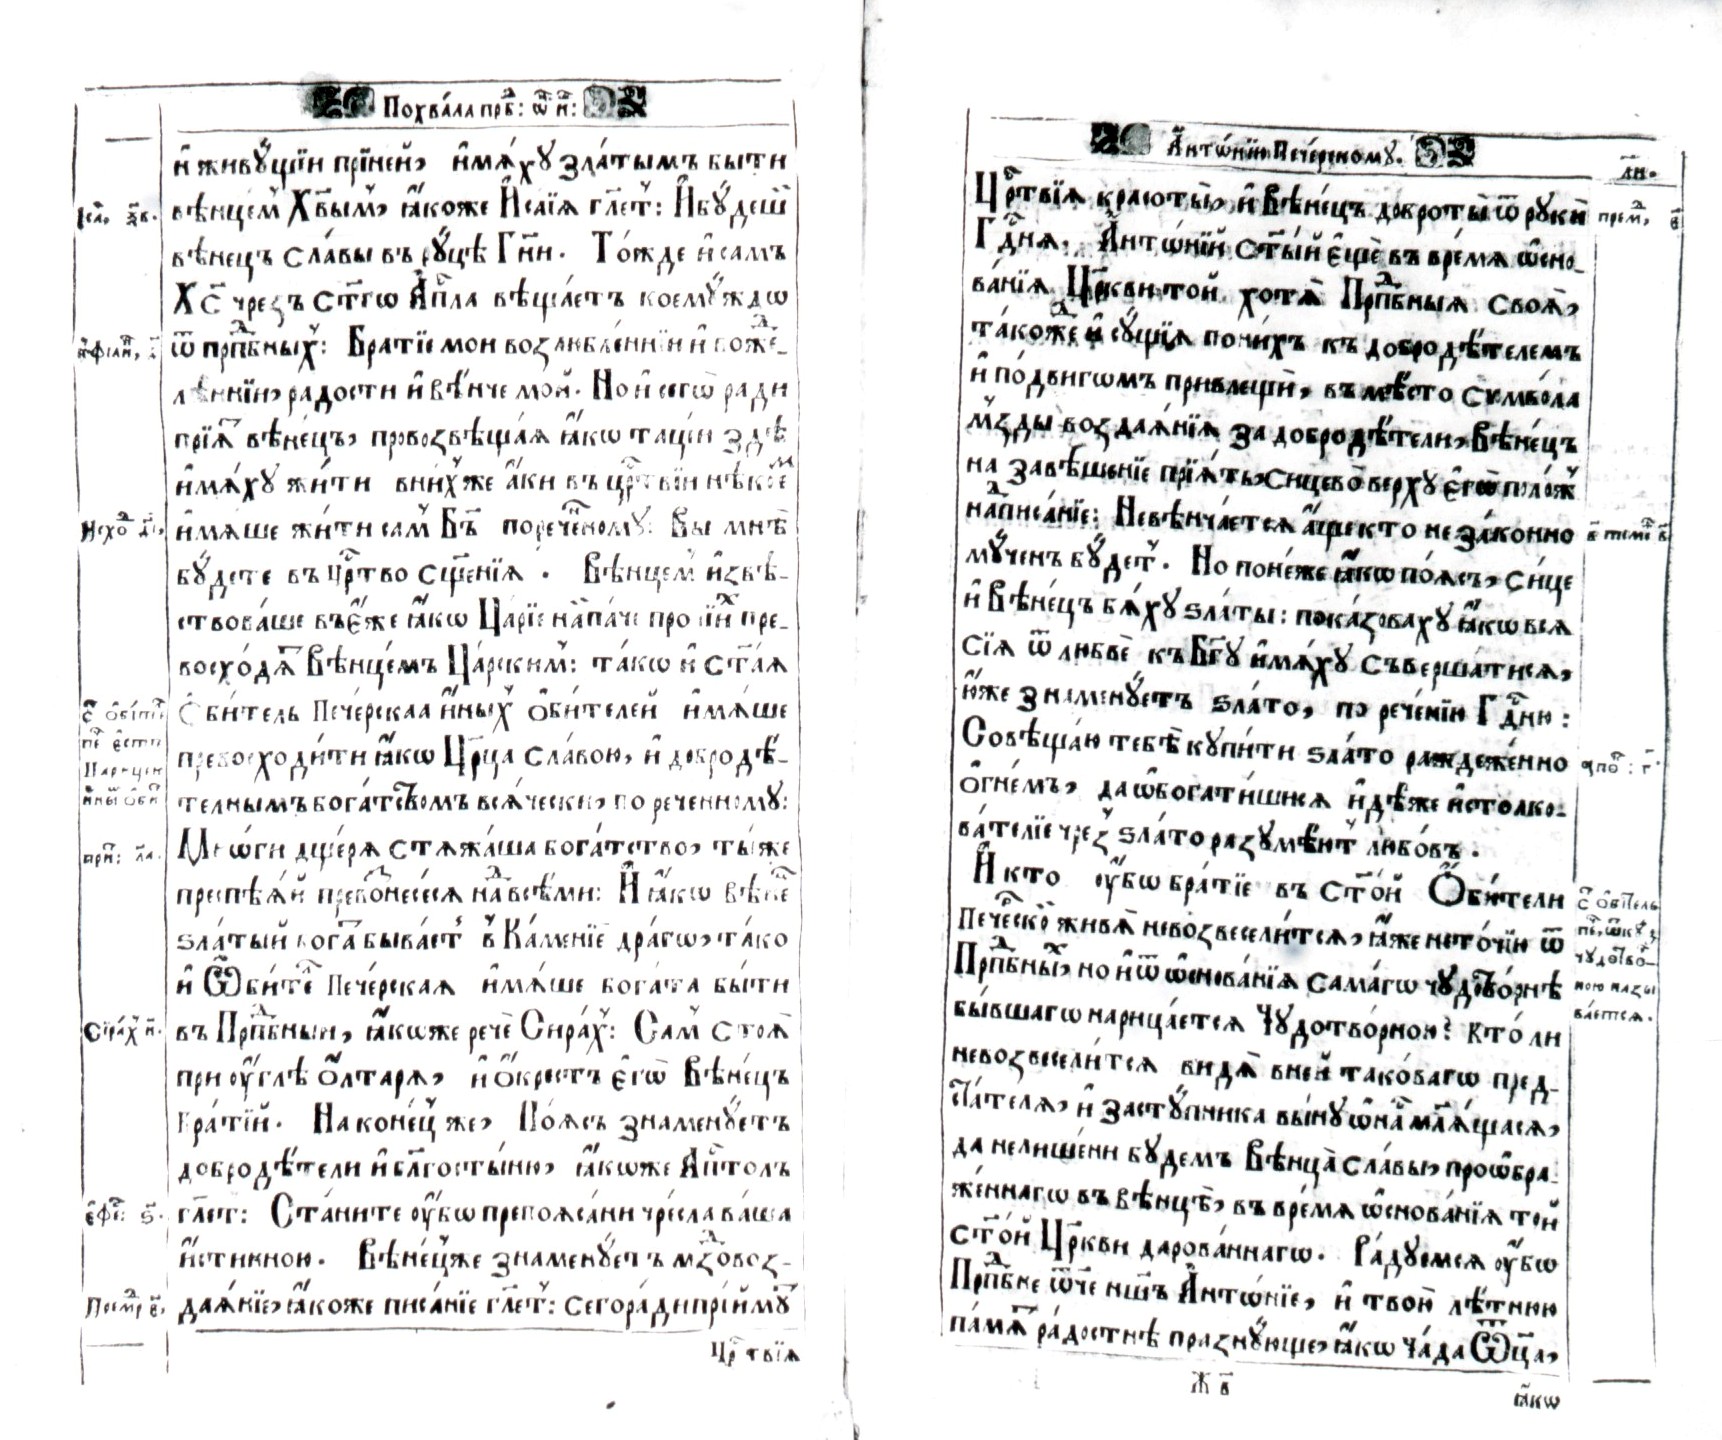 Похва́ла прⷣб: ѿ н҃:
и҆ живꙋ́щїи прїне́й, и҆мѧ́хꙋ зла́тымъ быти
вѣнце́мъ Хв҃ымъ, ꙗ҆́коже И҆са́їѧ гл҃етъ: И҆ бꙋ́деш
вѣне́цъ сла́вы въ рꙋцѣ̀ Гн҃и. То́жде и҆ самъ
Хс҃ чрезъ ст҃гѡ А҆пⷭ҇ла вѣща́етъ коемꙋ́ждѡ
ѿ прпⷣбныхъ: Братїе мои возлюбле́ннїи и҆ вожⷣе-
ле́ннїи, радости и҆ вѣ́нче мо́й. Но и҆ сегѡ̀ ради
прїѧ́т вѣне́цъ, провозвѣща́ѧ ꙗ҆́кѡ тацїи здѣ̀
и҆мѧ́хꙋ жи́ти в ни́хже а҆́ки въ црⷭ҇твїи нѣ́коемъ
и҆мѧше жи́ти самъ Бг҃ъ по рече́нномꙋ: Вы мнѣ
бꙋ́дете въ црⷭ҇тво сщ҃е́нїѧ. Вѣнце́мъ и҆звѣ-
ствова́ше въ є҆́же ꙗ҆́кѡ Царїе на́йпаче прочїихъ пре-
восхо́дѧт Вѣнце́мъ Ца́рскимъ: та́кѡ и҆ ст҃а́ѧ
Ѻ҆би́тель Пече́рскаа и҆́ныхъ ѻ҆би́телей и҆мѧ́ше
превосходи́ти ꙗ҆́кѡ Црц҃а сла́вою, и҆ добродѣ́-
телнымъ бога́тством всѧ́чески, по рече́нномꙋ:
Мнѡ́ги дще́рѧ стѧжа́ша бога́тство, ты́же
преспѣѧ́й превознесе́сѧ надⷣ всѣ́ми: И҆ ꙗ҆́кѡ вѣне́ц
ѕла́тый бога́т быва́етъ в Ка́менїе дра́гѡ, та́ко
и҆ Ѡ҆би́тель Пече́рскаѧ и҆мѧ́ше бога́та бы́ти
въ Прпⷣбныи, ꙗ҆́кѡже речѐ Сира́хъ: Самъ стоѧ̀
при ᲂу҆́глѣ ѻ҆лтарѧ̀, и҆ ѻ҆́крестъ є҆гѡ̀ Вѣне́цъ
Бра́тїй. На коне́цъ же, По́ѧсъ знаменꙋ́етъ
добродѣ́тели и҆ бл҃госты́ню, ꙗ҆́кѡже А҆п҃толъ
гл҃етъ: Ста́ните ᲂу҆́бѡ препоѧ́сани чре́сла ва́ша
и҆́стинною. Вѣне́цъже знаменꙋ́етъ мздⷣовоз-
даѧ́нїе, ꙗ҆́коже писа́нїе гл҃етъ: сегора́ди прїи́мꙋт
црⷭ҇твїѧ
І҆са́, з҃в.
Ѱ҆фїлип, д҃
Исхоⷣ
с҃ ѻ҆бител
Сїра́х н҃.
є҆фе: ѕ҃.
Премⷣр е҃,
А҆нтѡ́нїю Пече́рскомꙋ.
л҃и.
Црⷭ҇твїѧ красоты̀, и҆ Вѣне́цъ доброты̀ ѿ рꙋкѝ
Гдⷭ҇нѧ. А҆нтѡ́нїй ст҃ы́й є҆щѐ въ вре́мѧ ѡ҆сно-
ва́нїѧ Цр҃кви той хотѧ̀ Прпⷣбныѧ своѧ̀,
та́коже и҆ сꙋ́щїѧ по ни́хъ къ добродѣ́телемъ
и҆ по́двигѡмъ привлещѝ, въ мѣ́сто симво́ла
мзды̀ воздаѧ́нїѧ за добродѣ́тели, Вѣне́цъ
на завѣше́нїе прїѧ́тъ, сицево̀ верхꙋ̀ є҆гѡ̀ поло́ж
надⷣписа́нїе: Невѣнча́етсѧ а҆́ще кто не зако́нно
мꙋ́ченъ бꙋ́детъ. Но поне́же ꙗ҆́кѡ по́ѧсъ, си́це
и҆ Вѣне́цъ бѧ́хꙋ ѕла́ты: пока́зовахꙋ ꙗ҆́кѡ всѧ
сїѧ ѿ любвѐ къ Бг҃ꙋ и҆мѧ́хꙋ съверша́тисѧ,
ю҆́же знаменꙋ́етъ ѕла́то, по рече́нїю Гдⷭ҇ню:
Совѣща́ю тебѣ̀ кꙋпи́ти ѕла́то ражде́женно
ѻ҆гне́мъ, да ѡ҆богати́шисѧ и҆дѣ́же и҆столко-
ва́телїе чрез ѕла́то разꙋмѣ́ютъ любо́въ.
И҆ кто ᲂу҆́бѡ бра́тїе въ ст҃о́й Ѻ҆би́тели
Пече́рско́й живѧ̀ невозвесели́тсѧ, ꙗ҆́же не то́чїю ѿ
Прпⷣбныхъ, но и҆ ѿ ѡ҆снова́нїѧ сама́гѡ чꙋдотво́рнѣ
бы́вшагѡ нарица́етсѧ Чꙋдотво́рною? кто́ ли
невозвесели́тсѧ видѧ̀ в не́й тако́вагѡ пред-
ста́телѧ, и҆ застꙋ́пника вы́нꙋ ѡ҆ на́с мл҃ѧ́щасѧ,
да не лише́ни бꙋ́демъ Вѣнца̀ сла́вы, проѡ҆бра-
же́ннагѡ въ вѣнцѣ̀, въ вре́мѧ ѡ҆снова́нїѧ той
ст҃о́й Цр҃кви дарова́ннагѡ. Ра́дꙋемсѧ ᲂу҆́бѡ
Прпⷣбне ѿче нш҃ъ А҆нтѡ́нїе, и҆ твою̀ лѣ́тнюю
па́мѧт ра́достнѣ празнꙋ́юще, ꙗ҆́кѡ ча́да Ѿца̀,
Ж в҃
ꙗ҆́кѡ
премⷣ, е҃
в҃ тимо в҃
апо: г҃
с҃ ѻ҆битель
чꙋдотво-
рною назы
ва́етсѧ.